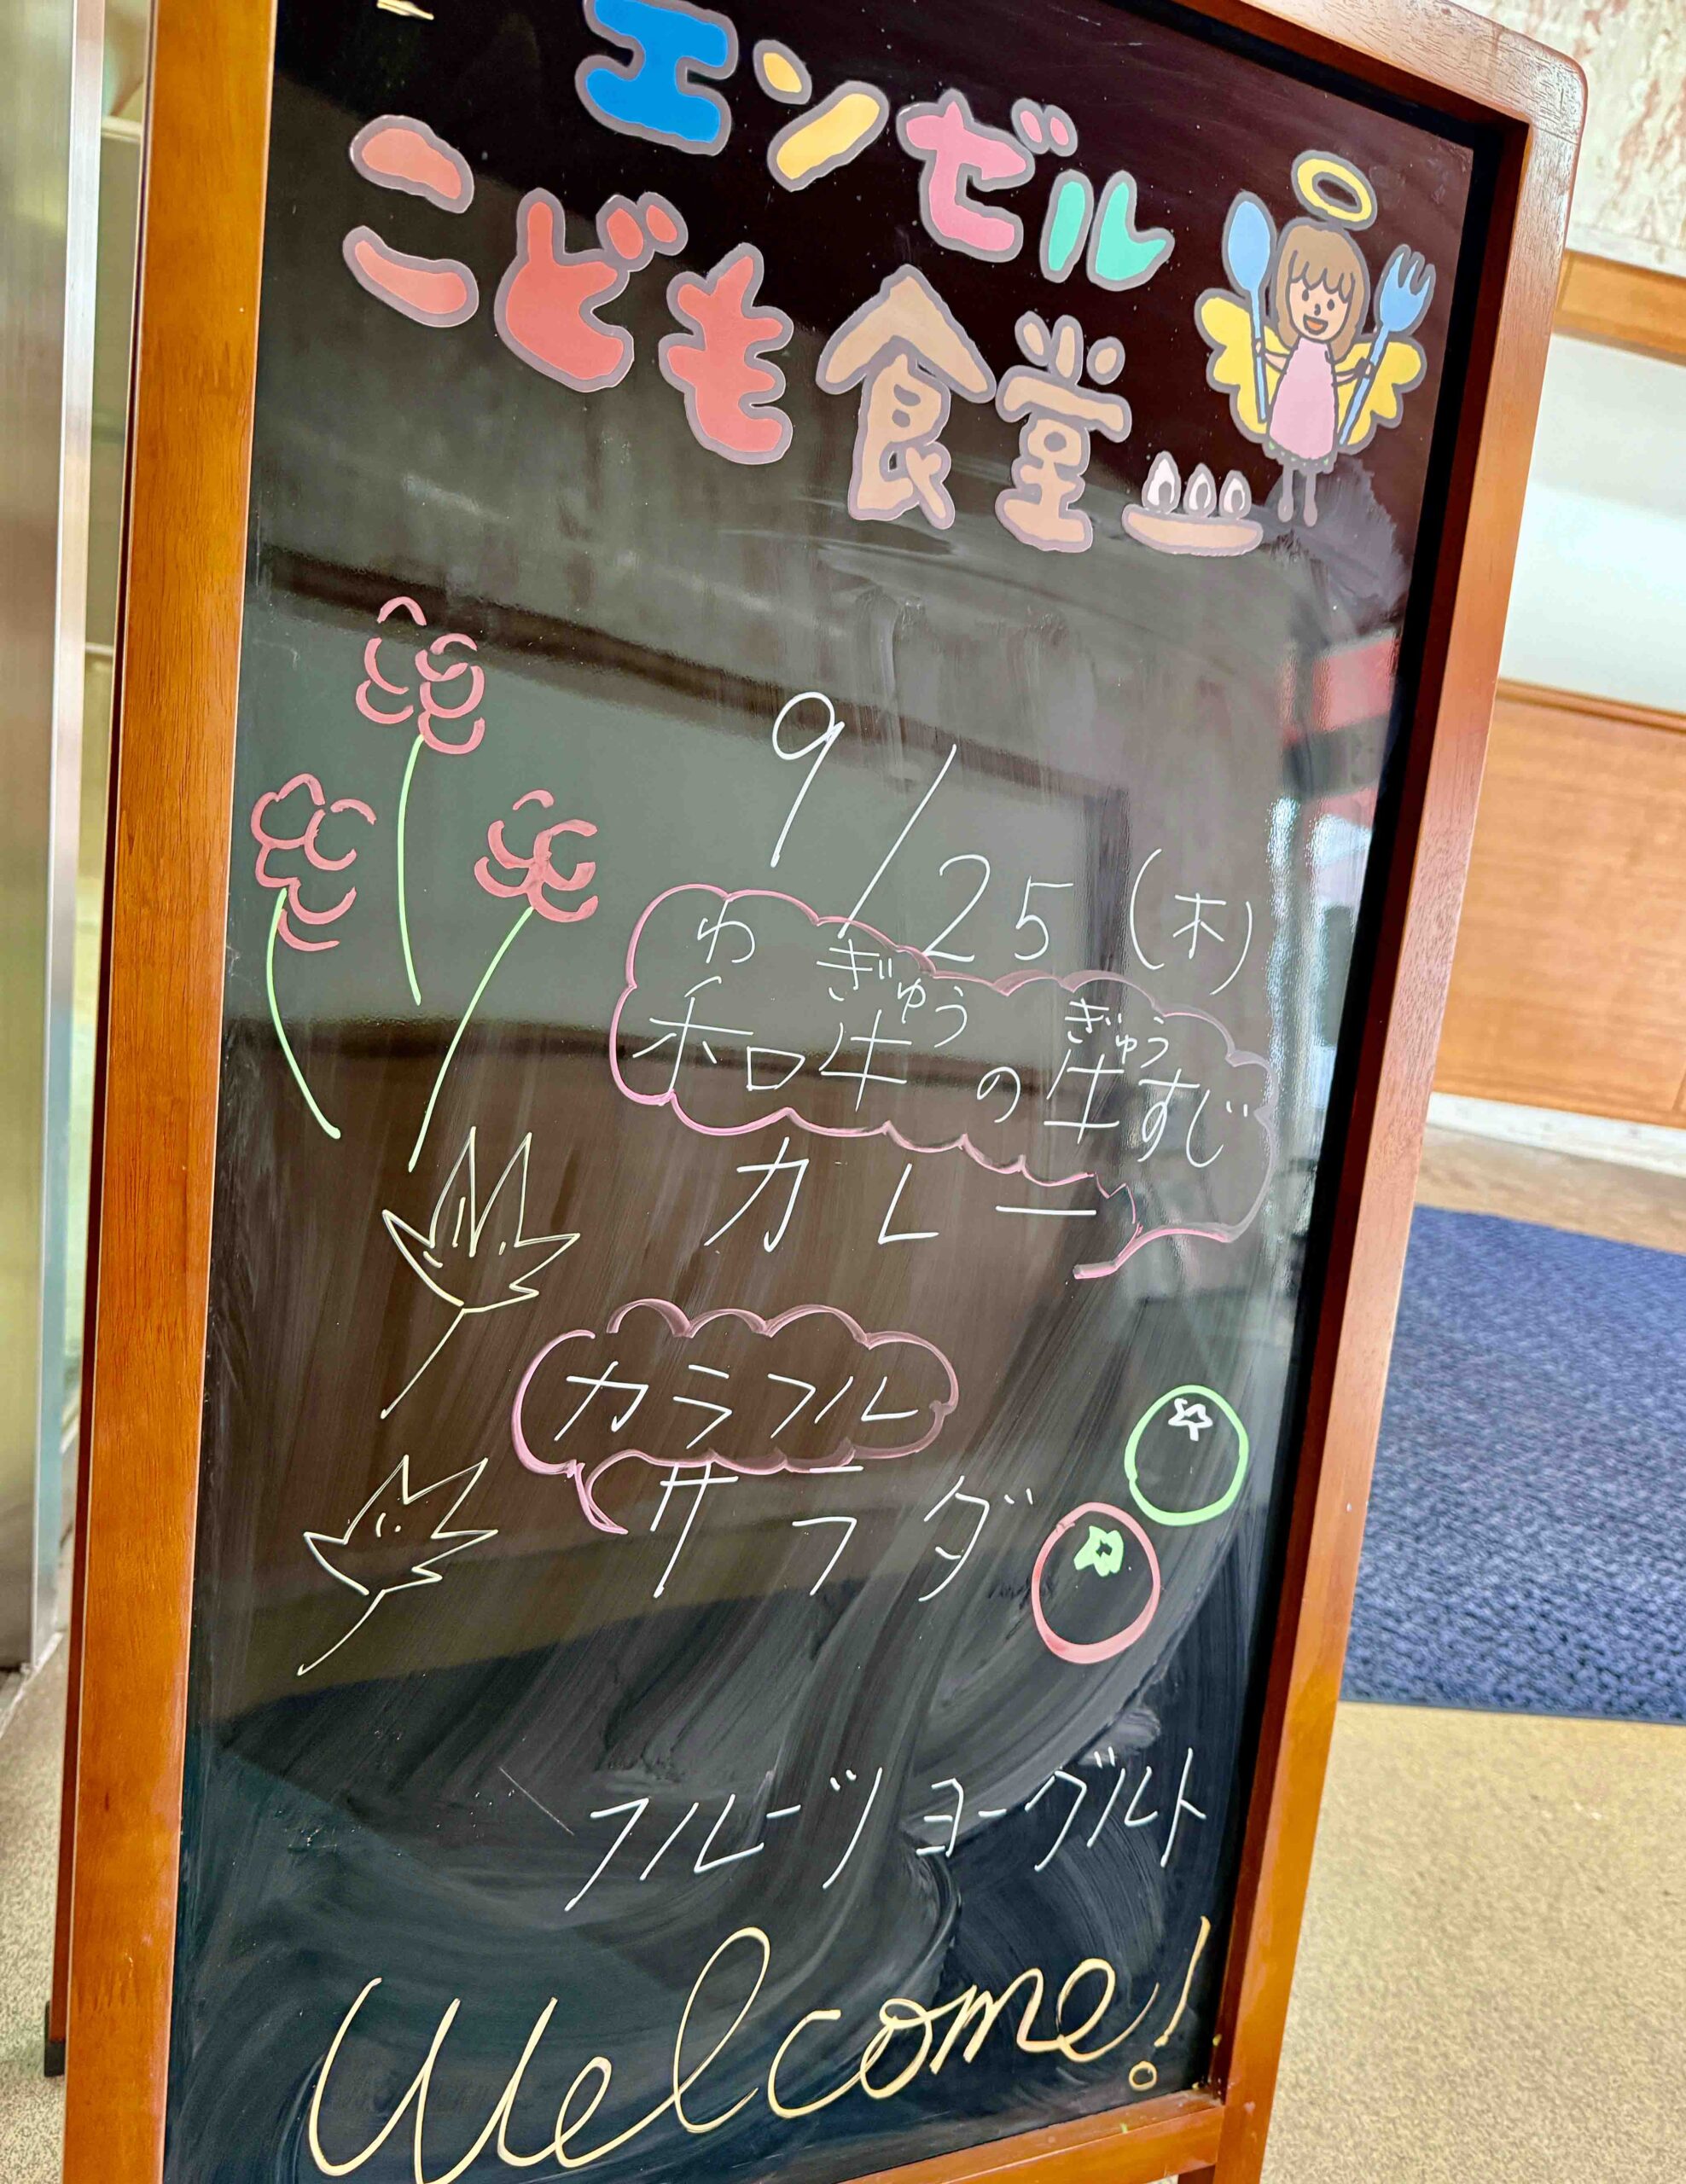 エンゼル
こども食堂
9/25(木)
わ ぎゅう ぎゅう
和牛の牛すじ
カレー
カラフル
サラダ
フルーツヨーグルト
Welcome!